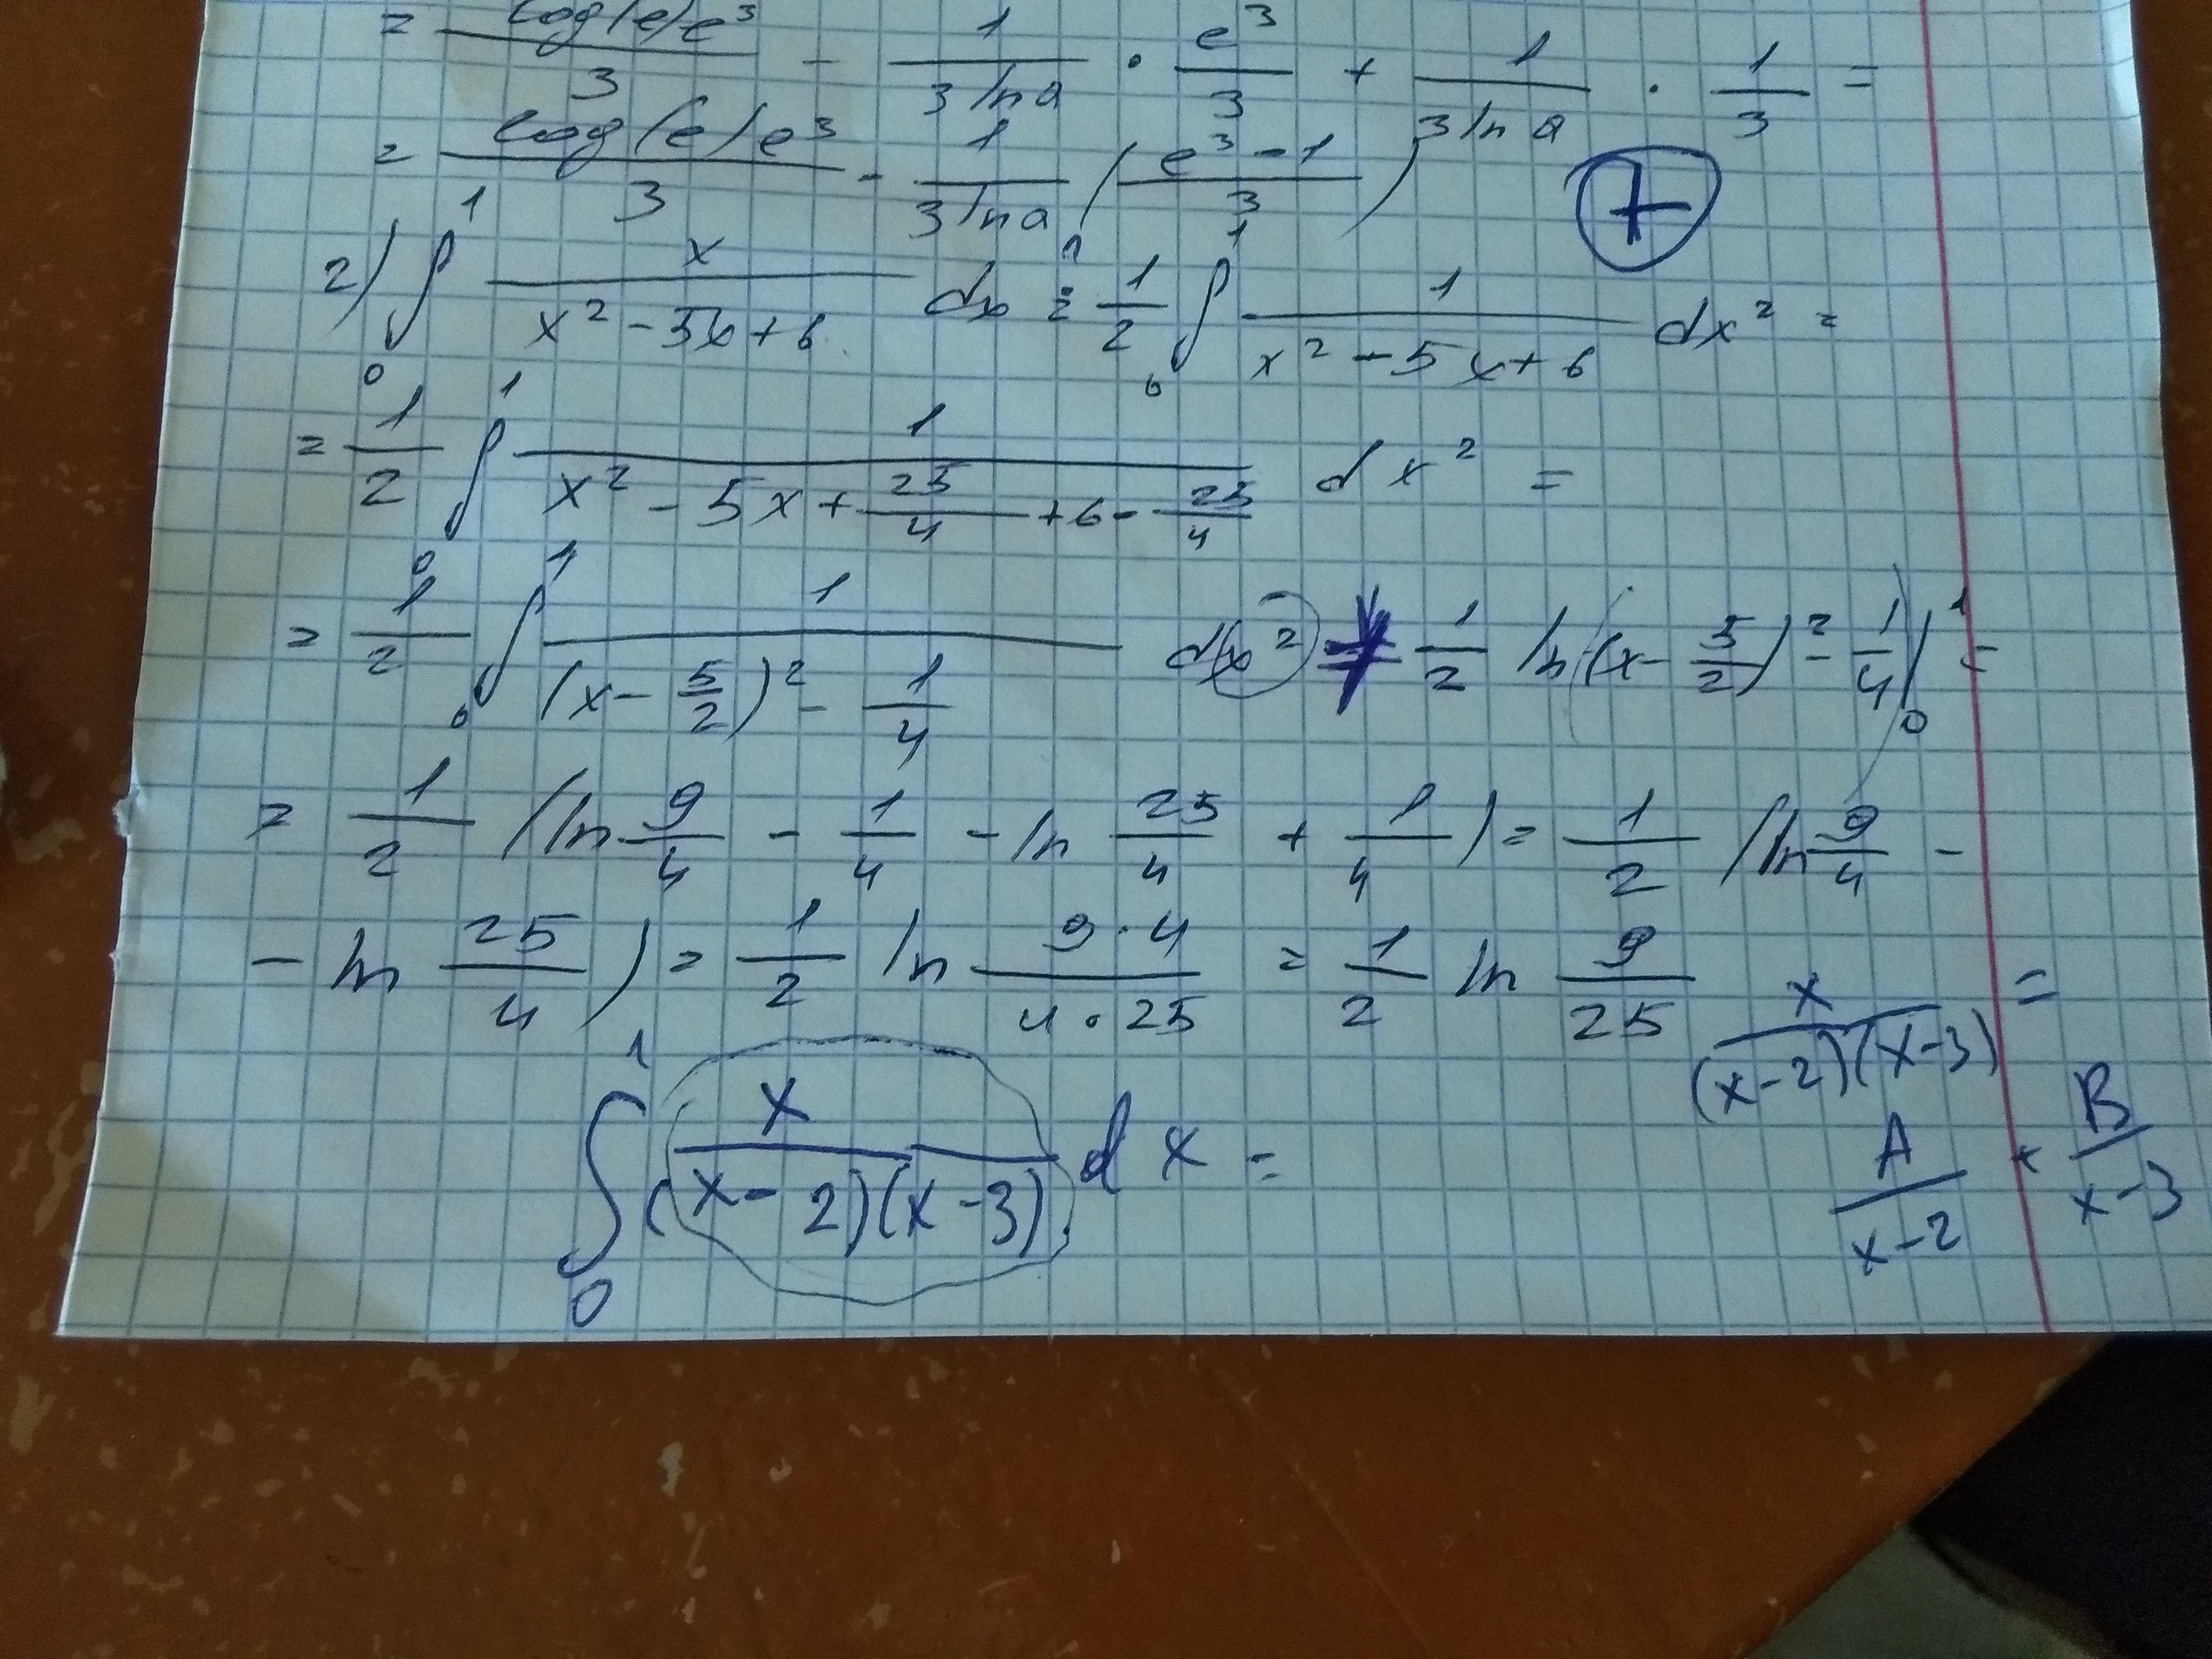 = log(e)e³/3 - 1/(3 ln a) · e³/3 + 1/(3 ln a) · 1/3 =
= log(e)e³/3 - 1/(3 ln a) ( (e³-1)/3 ) +
2) ∫₀¹ x/(x²-5x+6) dx = 1/2 ∫₀¹ 1/(x²-5x+6) dx² =
= 1/2 ∫₀¹ 1/(x²-5x+25/4+6-25/4) dx² =
= 1/2 ∫₀¹ 1/((x-5/2)²-1/4) dx² ≠ 1/2 ln(x-5/2)²-1/4 |₀¹ =
= 1/2 (ln 9/4 - 1/4 - ln 25/4 + 1/4) = 1/2 (ln 9/4 -
- ln 25/4) = 1/2 ln (9·4)/(4·25) = 1/2 ln 9/25
x/((x-2)(x-3)) =
A/(x-2) + B/(x-3)
∫₀¹ x/((x-2)(x-3)) dx =